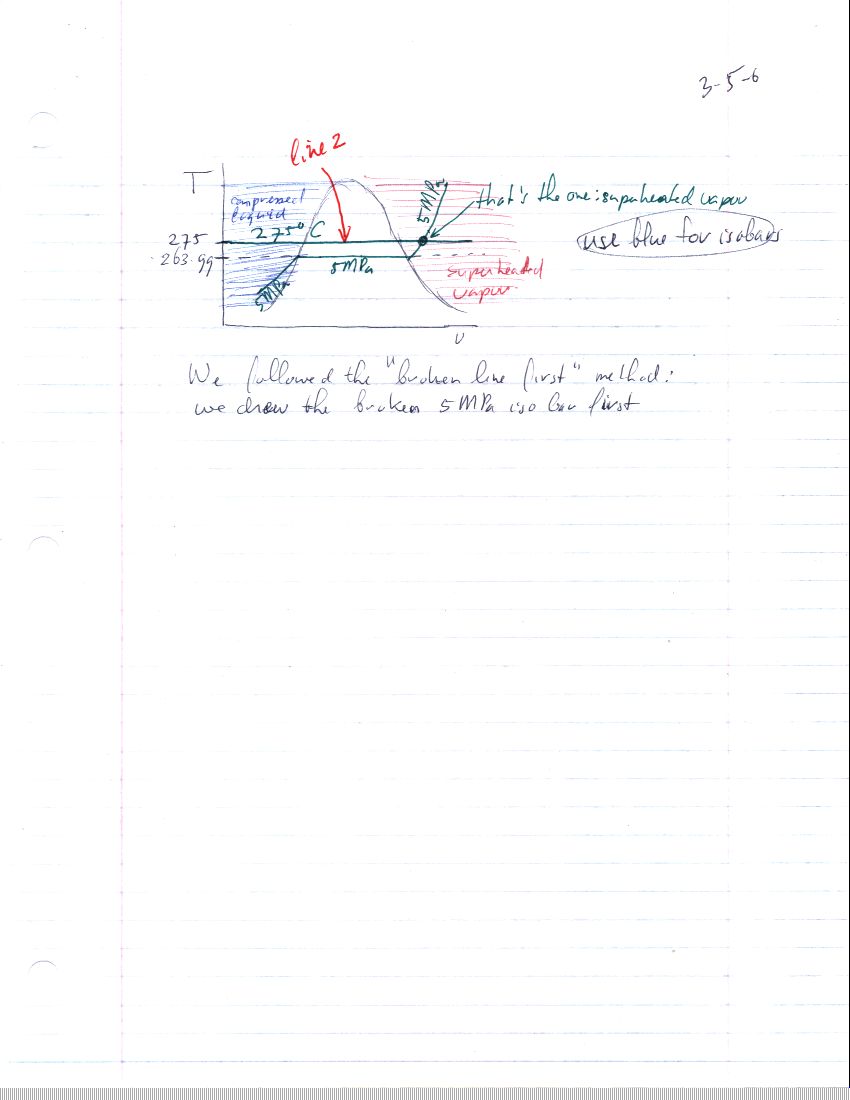 3-5-6
line 2
T
compressed
liquid
5 MPa
that's the one: superheated vapor
use blue for isobars
275
275° C
263.99
5MPa
superheated
vapor
5MPa
υ
We followed the "broken line first" method:
we draw the broken 5 MPa isobar first